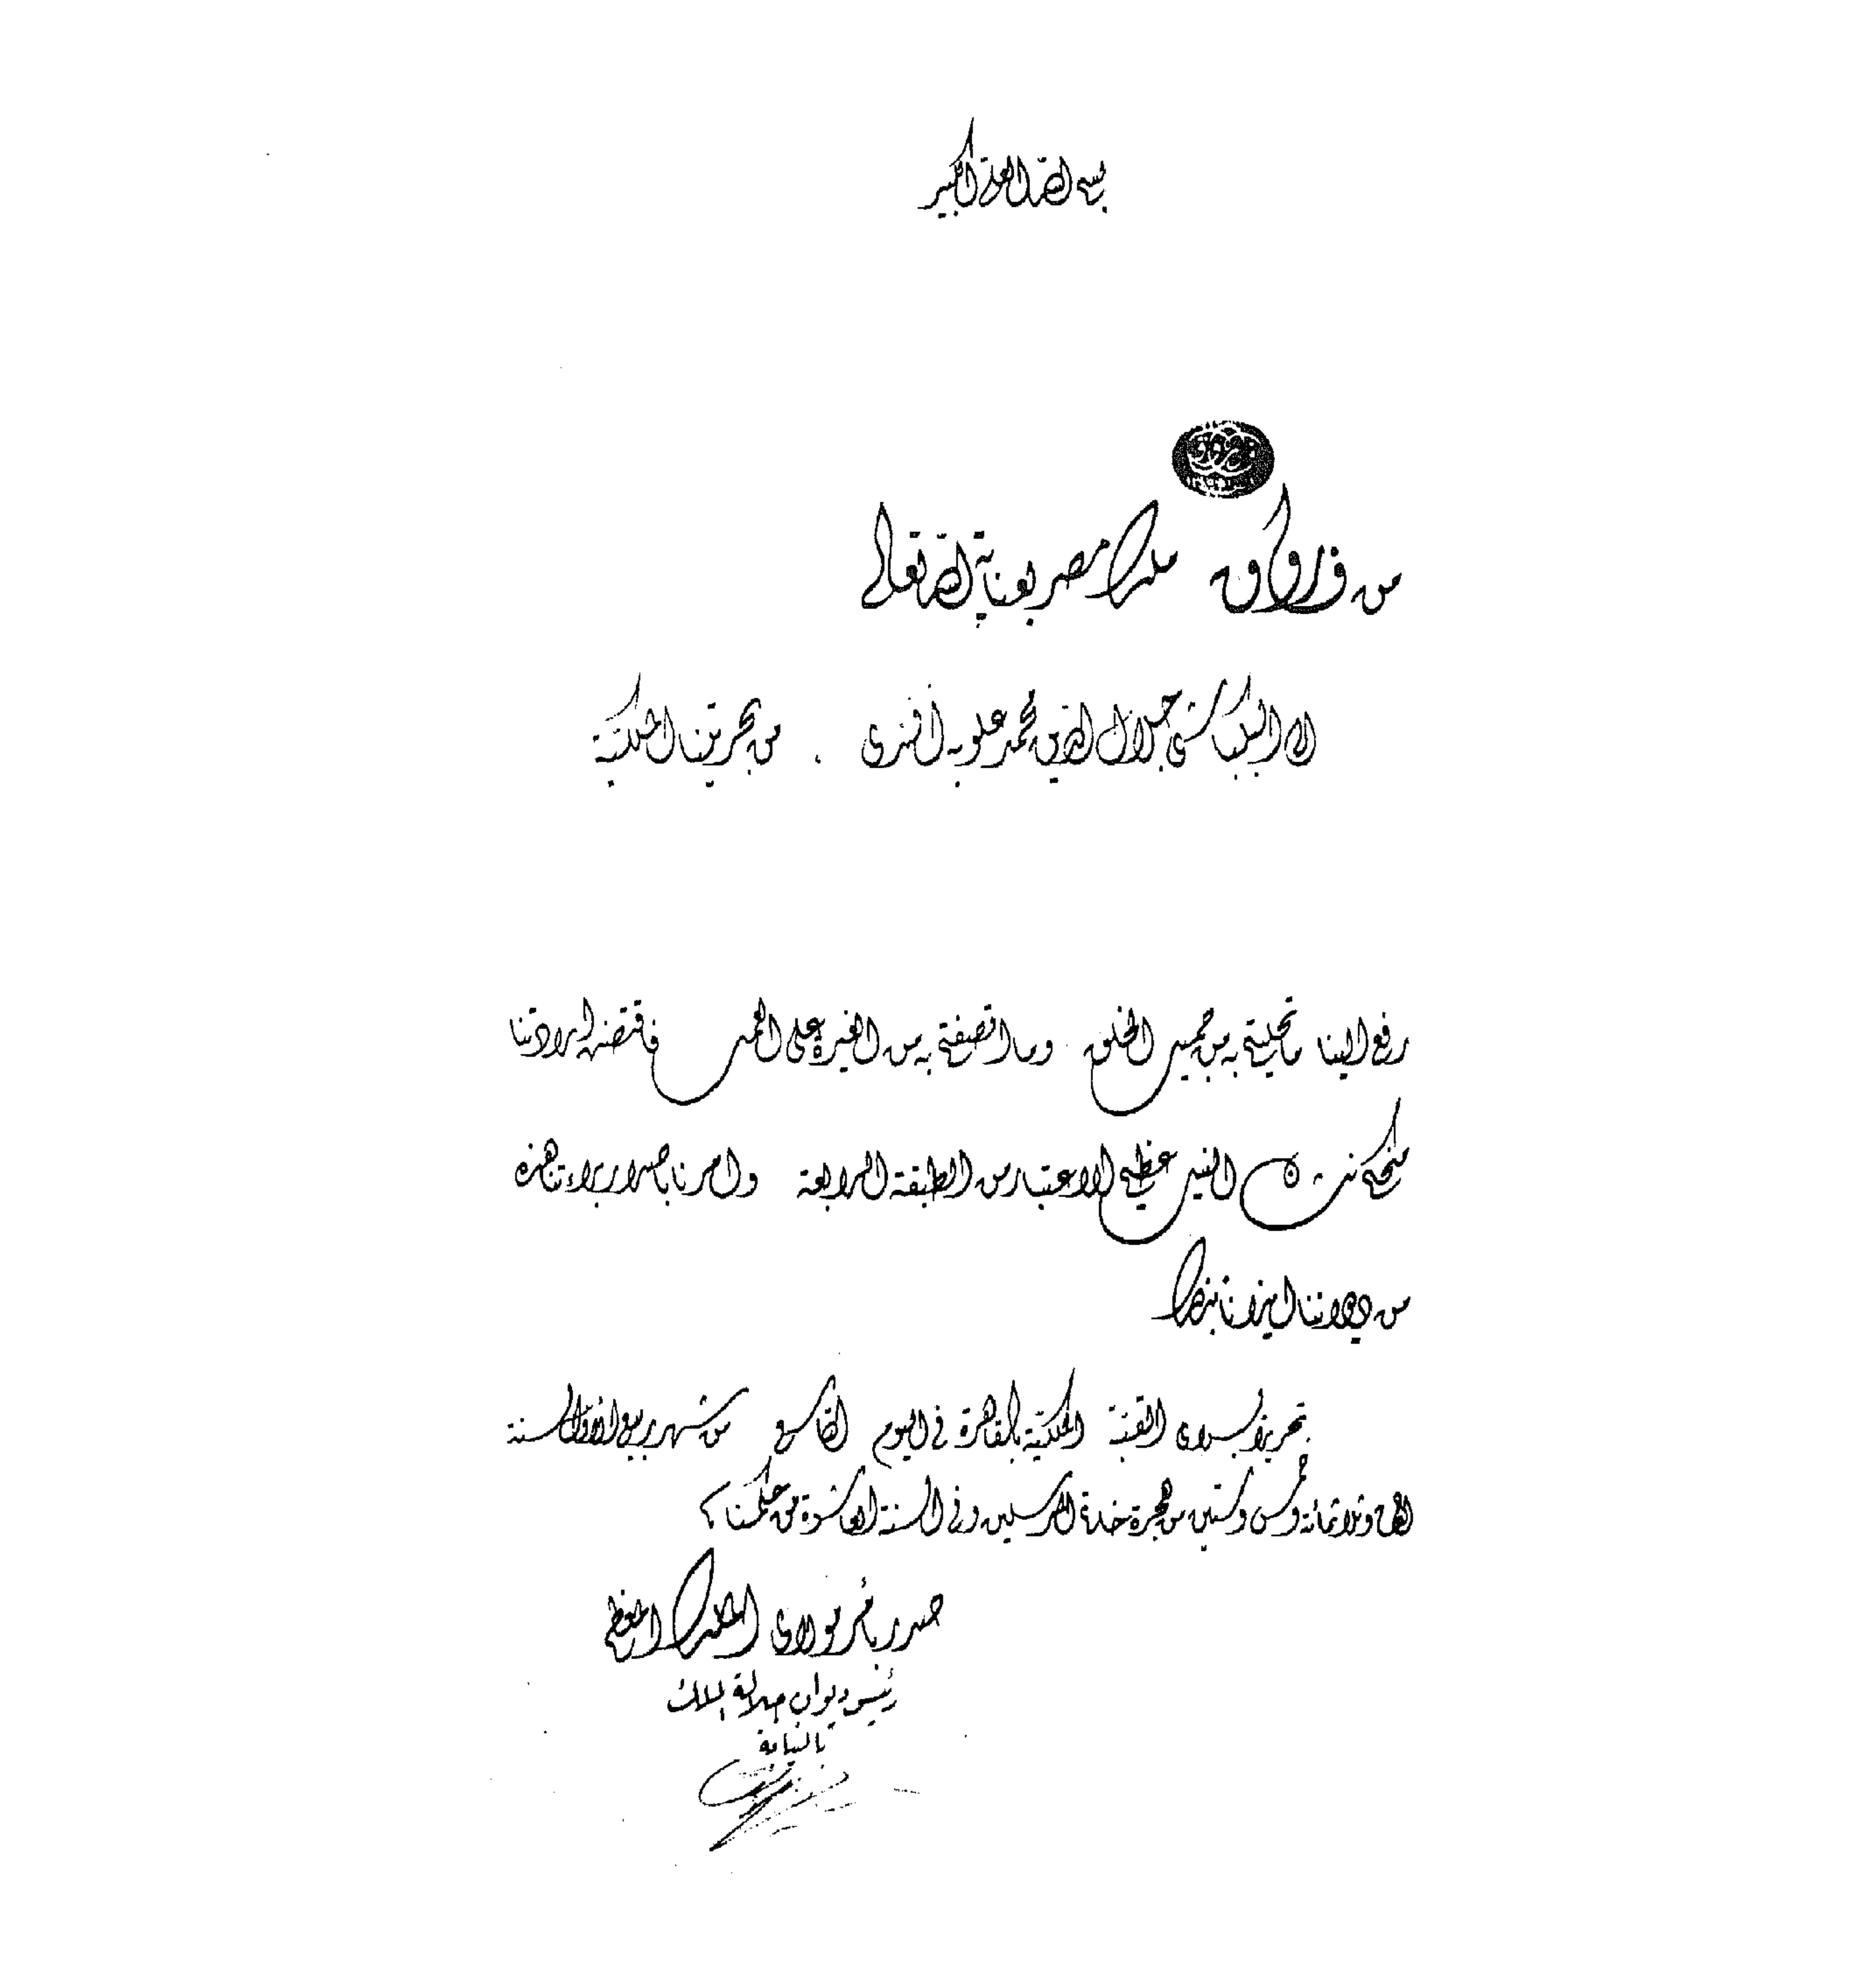 بسم الله العلي الكبير
من فاروق ملك مصر بعناية الله تعالى
إلى البكباشى جلال الدين محمد علوبه أفندى . من بحريتنا الملكية
رفع إلينا ما تحليتم به من جميل الخلق وما اتصفتم به من الغيرة على العمل فاقتضت إرادتنا
منحكم نشان النيل عظيم الاعتبار من الطبقة الرابعة وأمرنا بإصدار براءتنا هذه
من ديواننا إيذانا بذلك
تحريرا بسراى القبة الملكية بالقاهرة فى اليوم التاسع من شهر ربيع الأول لسنة
ألف وثلاثمائة وخمس وستين من هجرة خاتم المرسلين وفى السنة العاشرة من حكمنا
صدر بأمر مولاى الملك المعظم
رئيس ديوان جلالة الملك
بالنيابة